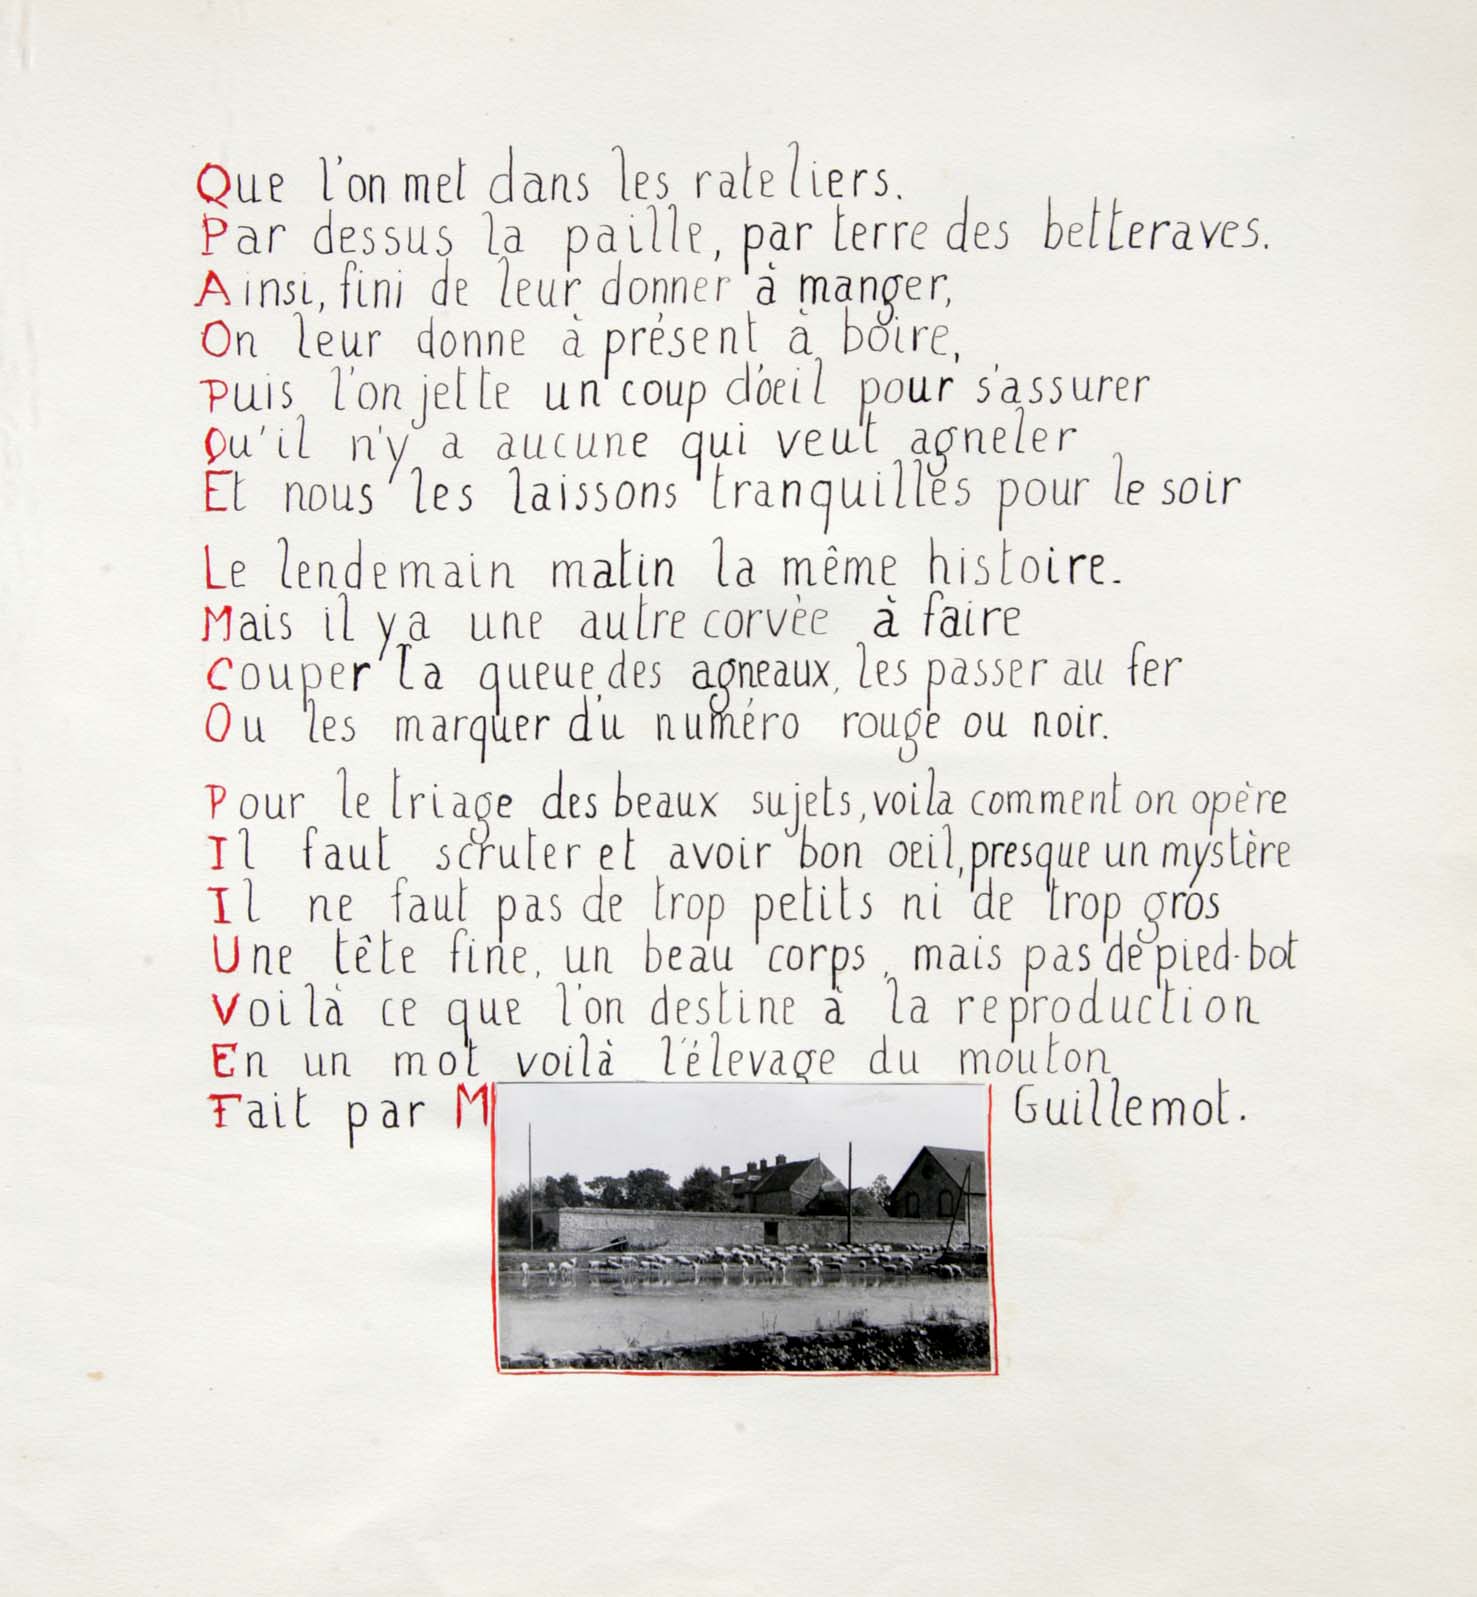 Que l'on met dans les rateliers.
Par dessus la paille, par terre des betteraves.
Ainsi, fini de leur donner à manger,
On leur donne à présent à boire,
Puis l'on jette un coup d'oeil pour s'assurer
Qu'il n'y a aucune qui veut agneler
Et nous les laissons tranquilles pour le soir
Le lendemain matin la même histoire.
Mais il y a une autre corvèe à faire
Couper la queue des agneaux, les passer au fer
Ou les marquer d'u numéro rouge ou noir.
Pour le triage des beaux sujets, voila comment on opère
Il faut scruter et avoir bon oeil, presque un mystère
Il ne faut pas de trop petits ni de trop gros
Une tête fine, un beau corps, mais pas de pied-bot
Voilà ce que l'on destine à la reproduction
En un mot voilà l'élevage du mouton
Fait par M Guillemot.